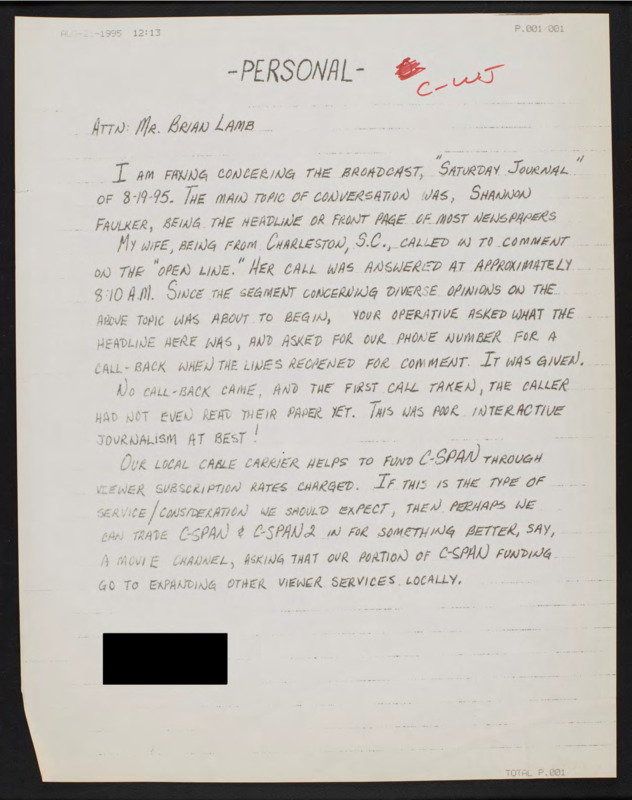 1995 12:13
P.001/001
-PERSONAL-
C-WJ
ATTN: MR. BRIAN LAMB
I AM FAXING CONCERING THE BROADCAST, "SATURDAY JOURNAL"
OF 8-19-95. THE MAIN TOPIC OF CONVERSATION WAS, SHANNON
FAULKER, BEING THE HEADLINE OR FRONT PAGE OF MOST NEWSPAPERS
MY WIFE, BEING FROM CHARLESTON, S.C., CALLED IN TO COMMENT
ON THE "OPEN LINE." HER CALL WAS ANSWERED AT APPROXIMATELY
8:10 A.M. SINCE THE SEGMENT CONCERNING DIVERSE OPINIONS ON THE
ABOVE TOPIC WAS ABOUT TO BEGIN, YOUR OPERATIVE ASKED WHAT THE
HEADLINE HERE WAS, AND ASKED FOR OUR PHONE NUMBER FOR A
CALL-BACK WHEN THE LINES REOPENED FOR COMMENT. IT WAS GIVEN.
NO CALL-BACK CAME, AND THE FIRST CALL TAKEN, THE CALLER
HAD NOT EVEN READ THEIR PAPER YET. THIS WAS POOR INTERACTIVE
JOURNALISM AT BEST!
OUR LOCAL CABLE CARRIER HELPS TO FUND C-SPAN THROUGH
VIEWER SUBSCRIPTION RATES CHARGED. IF THIS IS THE TYPE OF
SERVICE/CONSIDERATION WE SHOULD EXPECT, THEN PERHAPS WE
CAN TRADE C-SPAN & C-SPAN2 IN FOR SOMETHING BETTER, SAY,
A MOVIE CHANNEL, ASKING THAT OUR PORTION OF C-SPAN FUNDING
GO TO EXPANDING OTHER VIEWER SERVICES LOCALLY.
TOTAL P.001